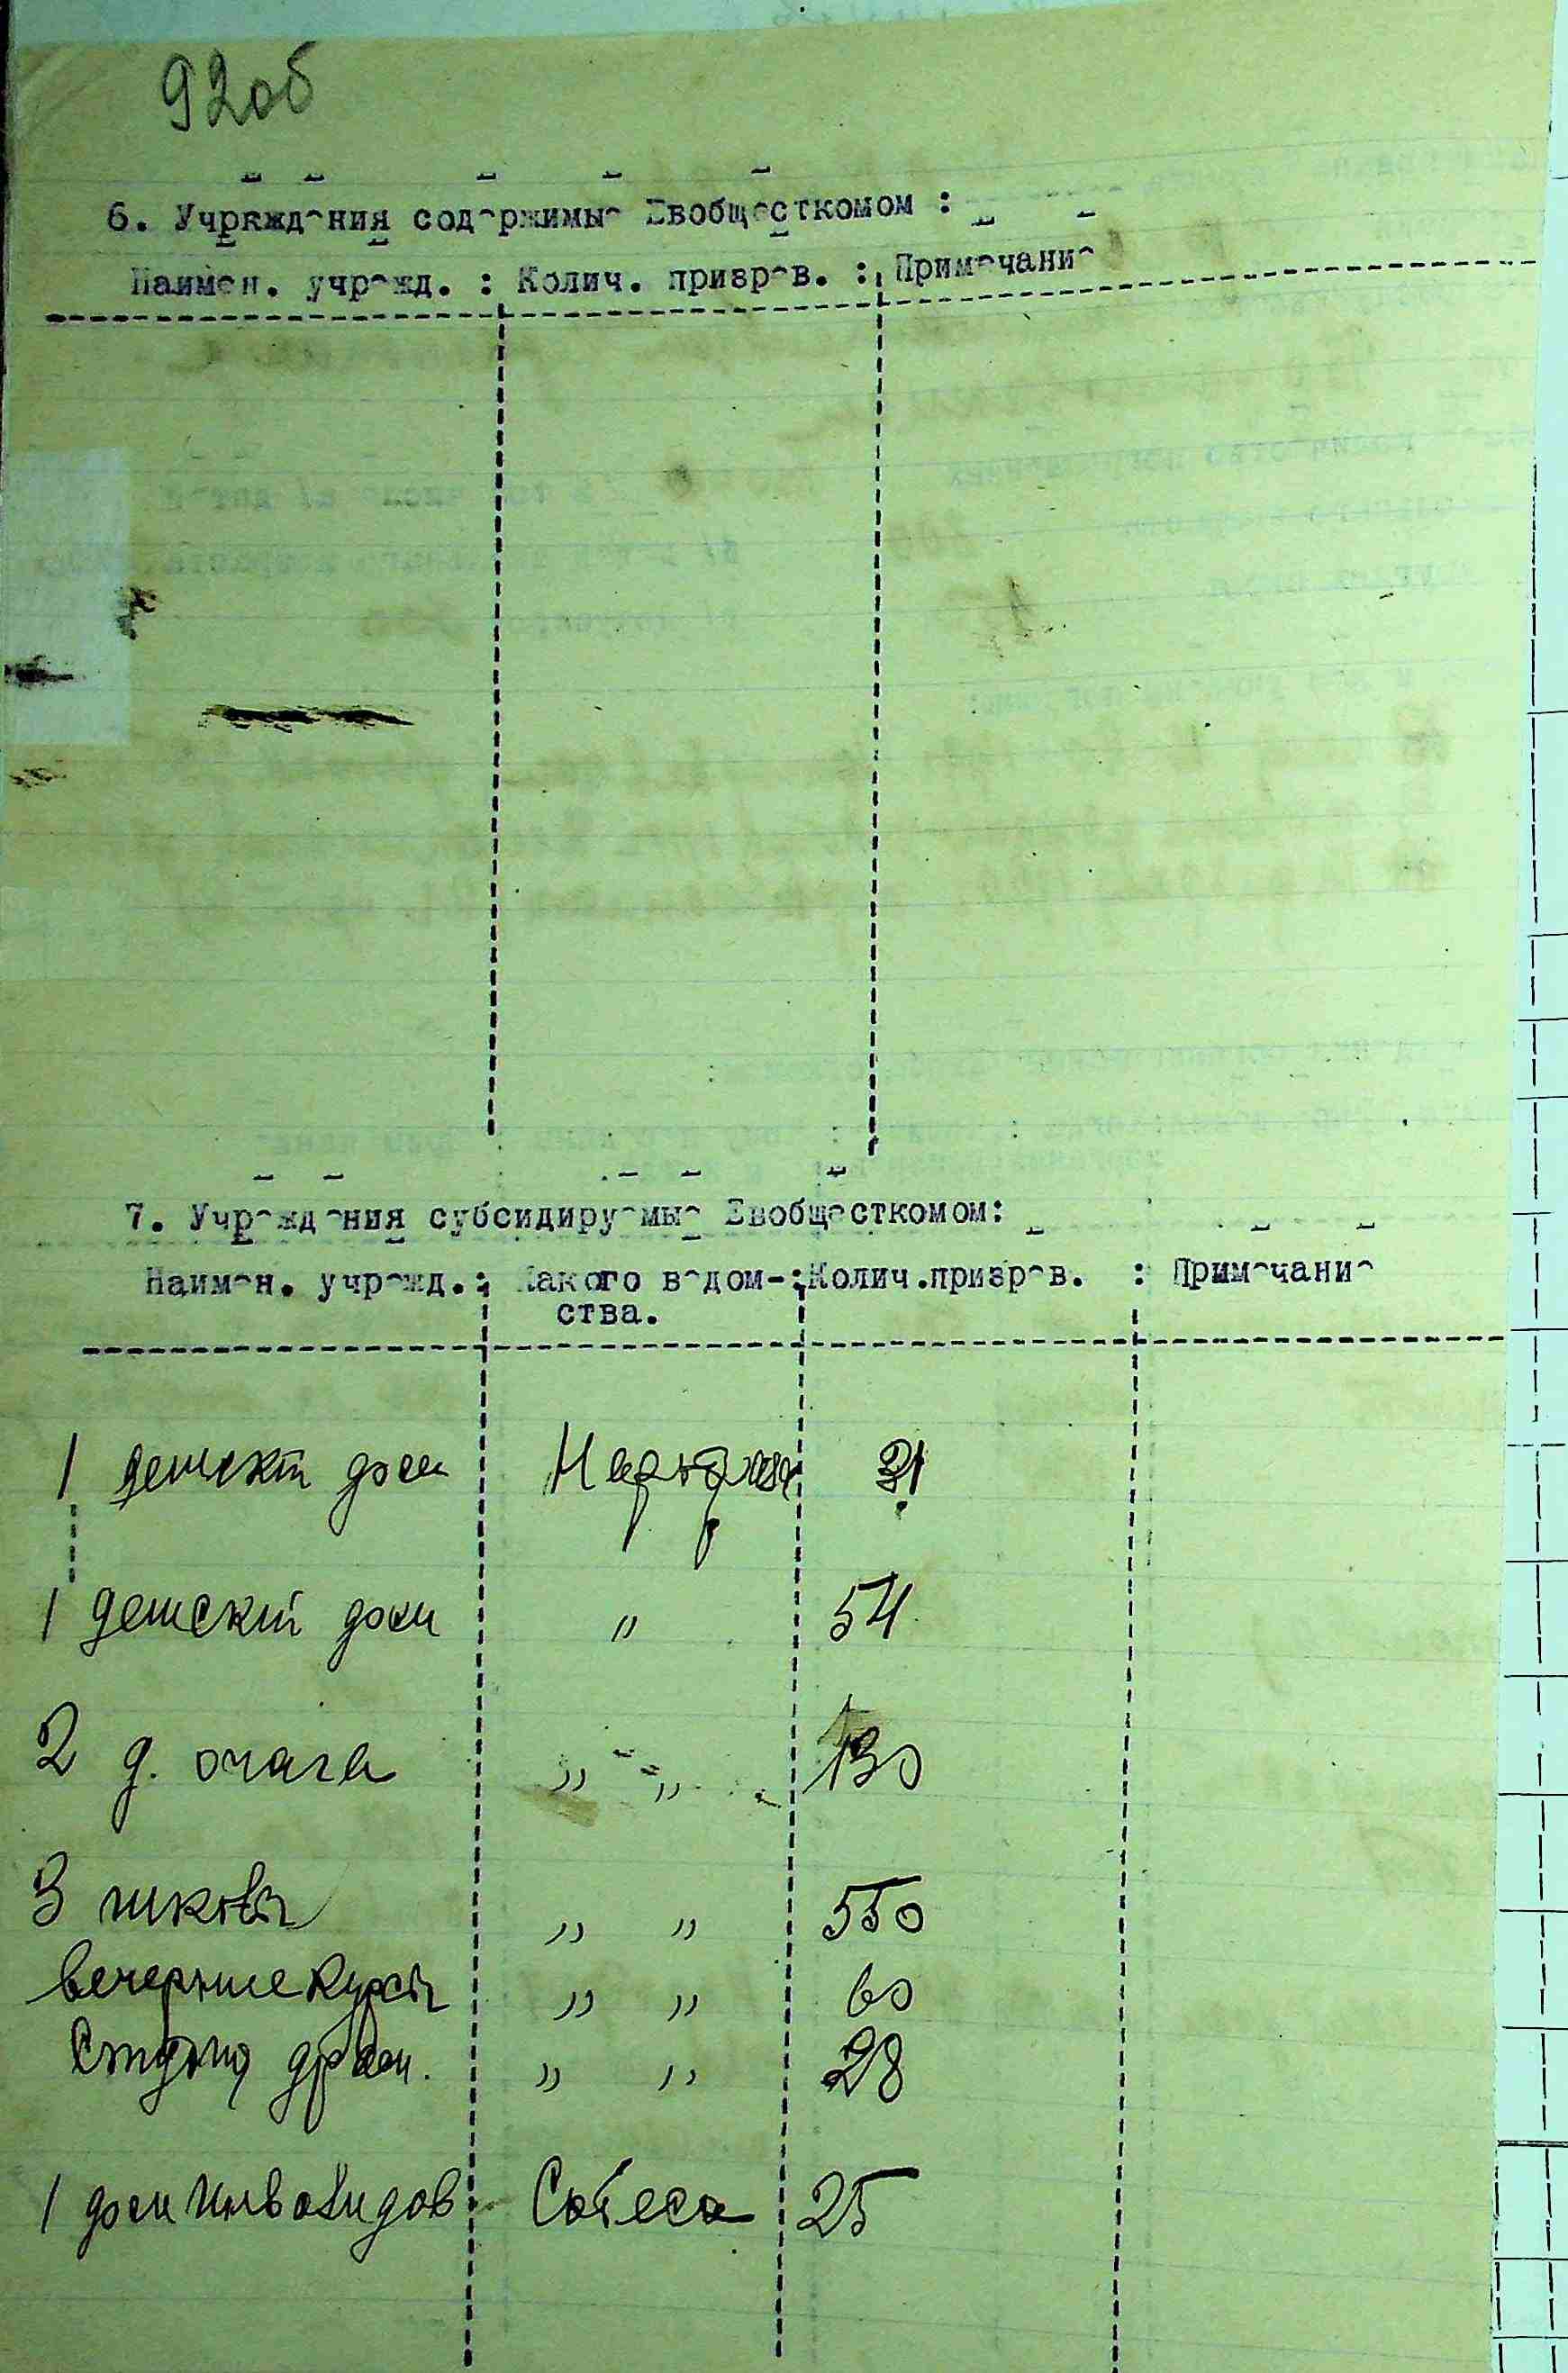 92об
6. Учреждения содержимые Евобщесткомом :
Наимен. учрежд. : Колич. призрев. : Примечание
7. Учреждения субсидируемые Евобщесткомом:
Наимен. учрежд. : Какого ведом- : Колич.призрев. : Примечание
ства.
1 детский дом 31
1 детский дом " 54
2 д. очага " " 130
3 школы " " 550
вечерние курсы " " 60
" " 28
1 дом Инвалидов Собеса 25